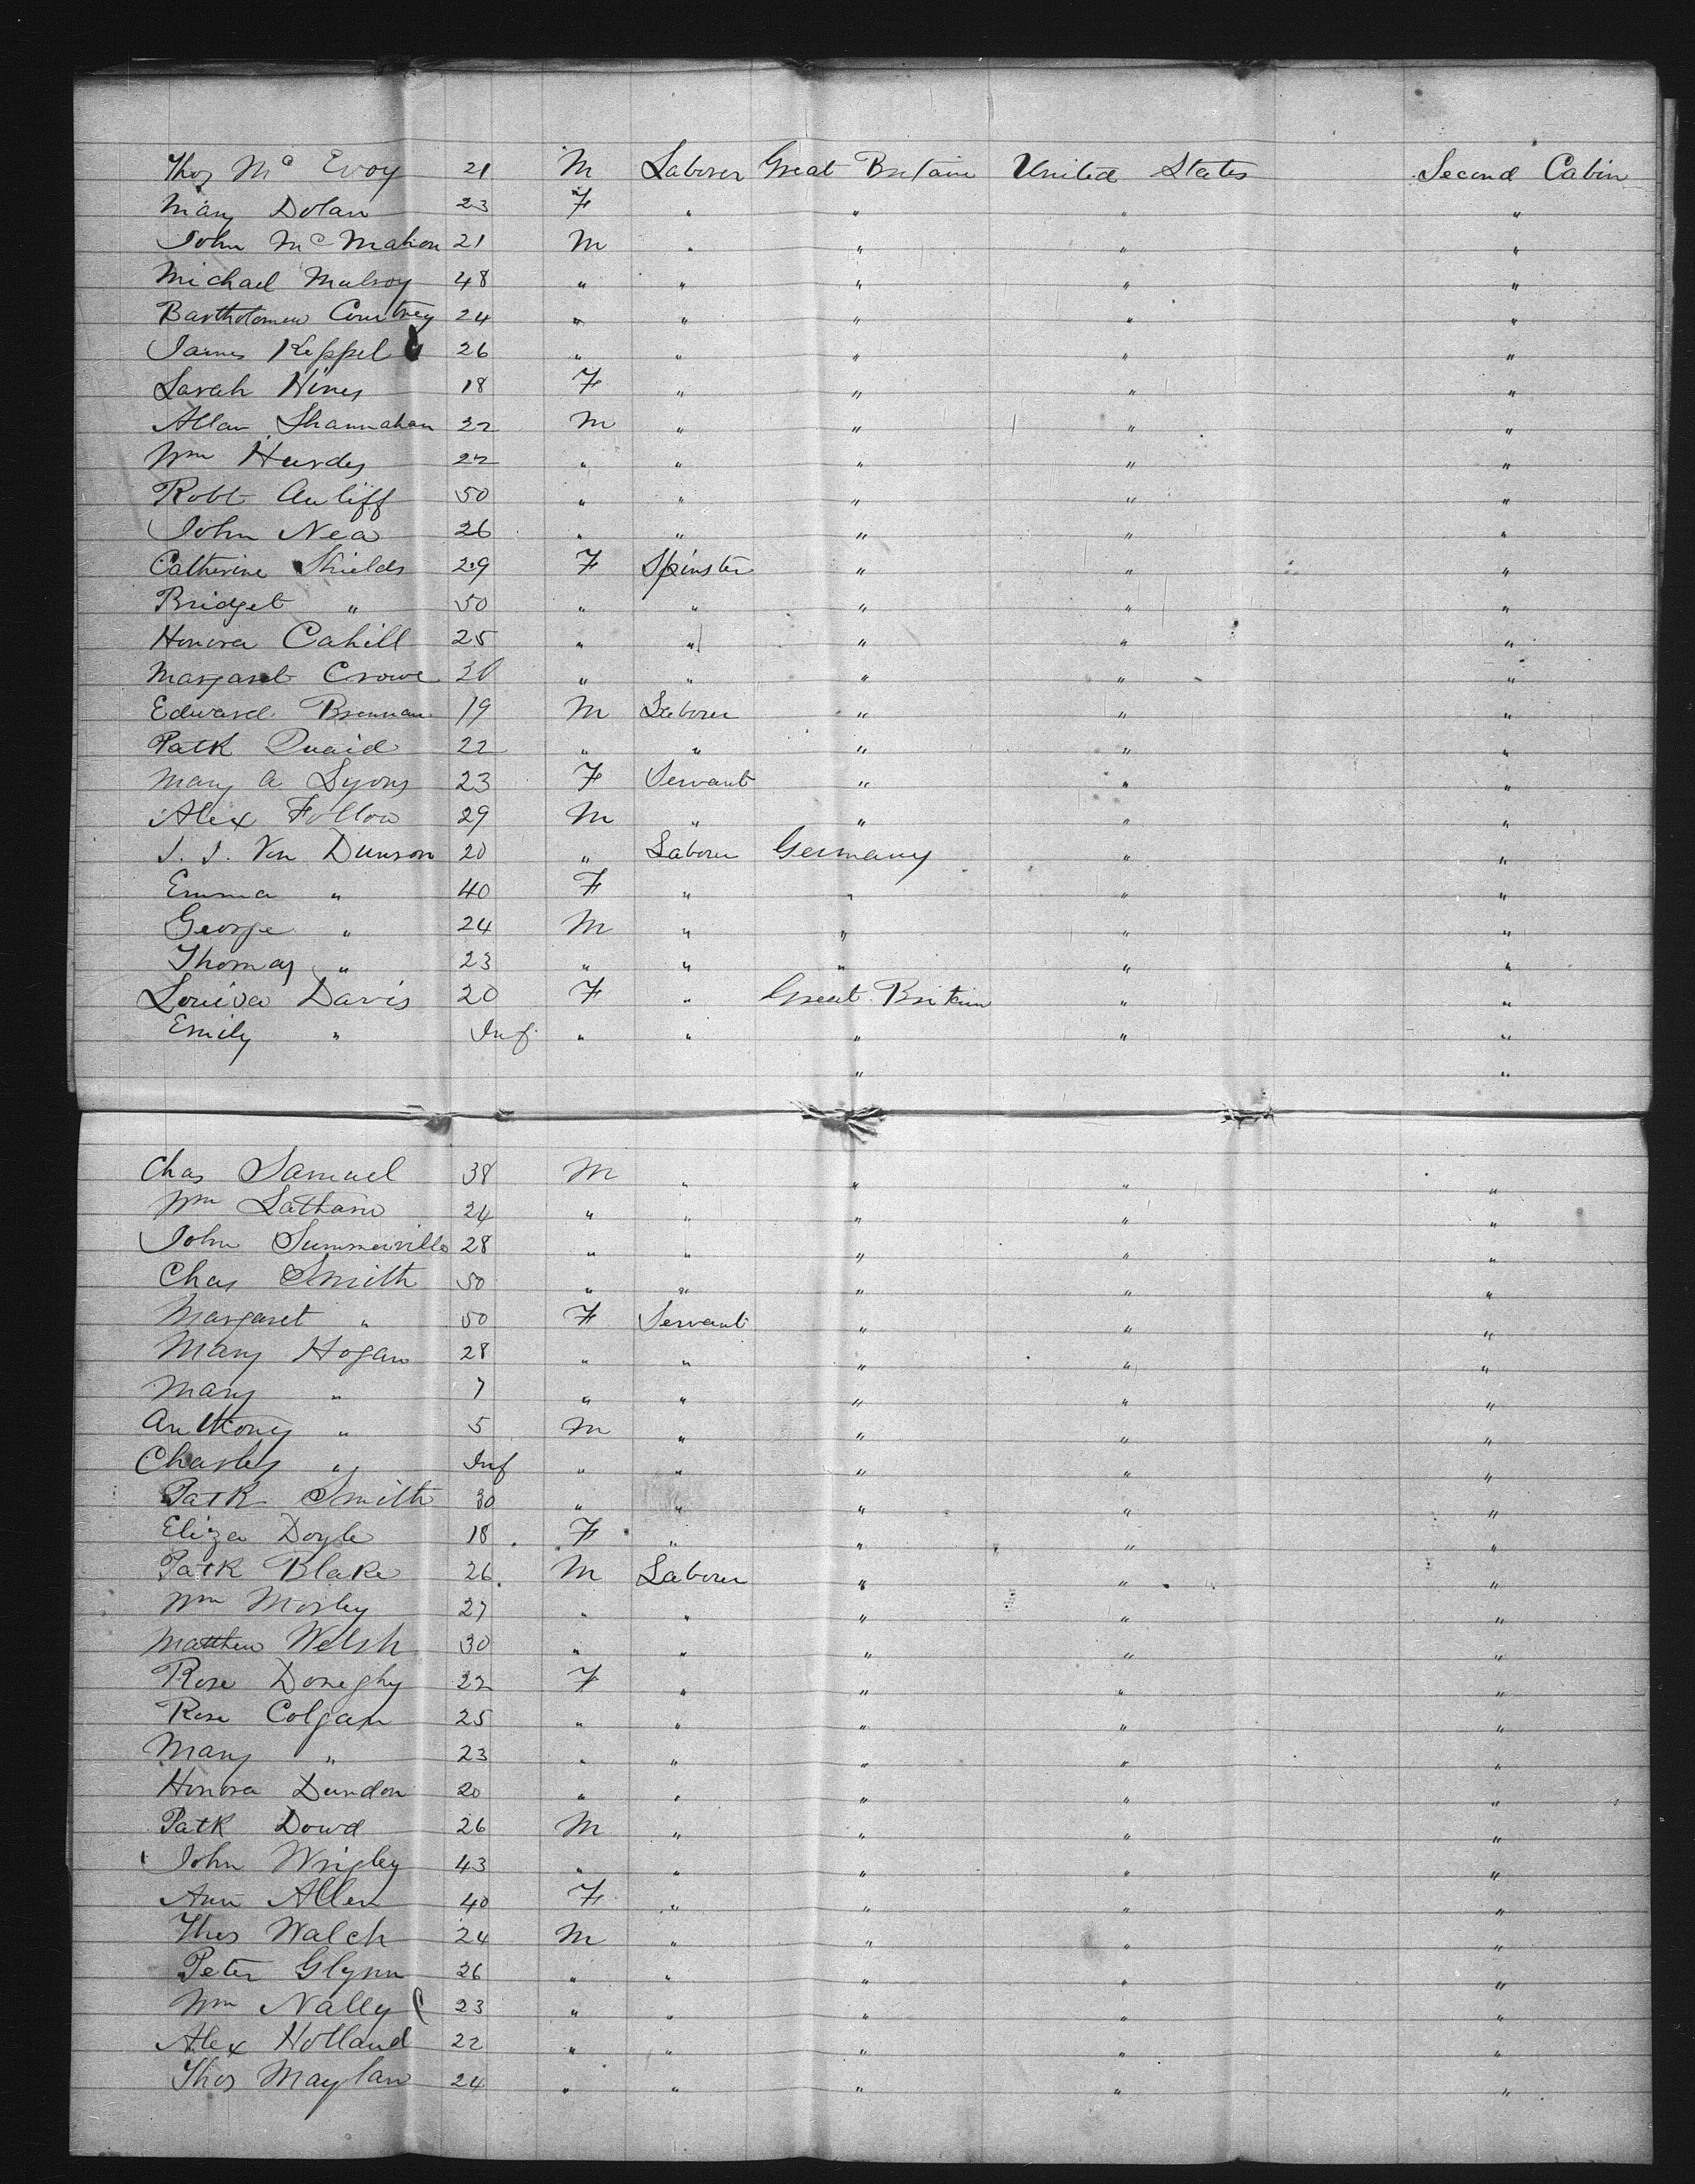 Thos Mc Evoy 21 M Laborer Great Britain United States Second Cabin
Mary Dolan 23 F " " " "
John McMahon 21 M " " " "
Michael Mulroy 48 " " " " "
Bartholomew Courtney 24 " " " " "
James Keppel 26 " " " " "
Sarah Hines 18 F " " " "
Allan Shannahan 22 M " " " "
Wm 22 " " " " "
Robt 50 " " " " "
John Nea 26 " " " " "
Catherine Shields 29 F Spinster " " "
Bridget " 50 " " " " "
Honora Cahill 25 " " " " "
Margaret Crowe 30 " " " " "
Edward Brennan 19 M Laborer " " "
Patk Quaid 22 " " " " "
Mary A Lyons 23 F Servant " " "
Alex Follow 29 M " " " "
J. J. Von Dunson 20 " Laborer Germany " "
Emma " 40 F " " " "
George " 24 M " " " "
Thomas " 23 " " " " "
Louisa Davis 20 F " Great Britain " "
Emily " Inf " " " " "
" "
Chas Samuel 38 M " " " "
Wm Latham 24 " " " " "
John Summerville 28 " " " " "
Chas Smith 50 " " " " "
Margaret " 50 F Servant " " "
Mary Hogan 28 " " " " "
Mary " 7 " " " " "
Anthony " 5 M " " " "
Charles " Inf " " " " "
Patk Smith 30 " " " " "
Eliza Doyle 18 F " " " "
Patk Blake 26 M Laborer " " "
Wm Mosley 27 " " " " "
Matthew Welsh 30 " " " " "
Rose Doneghy 22 F " " " "
Rose Colgan 25 " " " " "
Mary " 23 " " " " "
Honora Dundon 20 " " " " "
Patk Dowd 26 M " " " "
John Wrigley 43 " " " " "
Ann Allen 40 F " " " "
Thos Walch 24 M " " " "
Peter Glynn 26 " " " " "
Wm Nally 23 " " " " "
Alex Holland 22 " " " " "
Thos Maylan 24 " " " " "